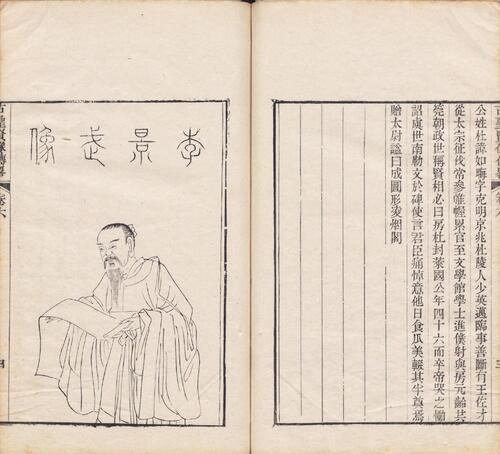 公姓杜諱如晦字克明京兆杜陵人少英邁臨事善斷有王佐才
從太宗征伐常參帷幄累官至文學館學士進僕射與房元齡共
筦朝政世稱賢相必曰房杜封萊國公年四十六而卒帝哭之慟
詔虞世南勒文於碑使言君臣痛悼意他日食瓜美輟其半奠焉
贈太尉諡曰成圖形凌烟閣
三
李景武像
古聖賢像傳畧
卷六
四